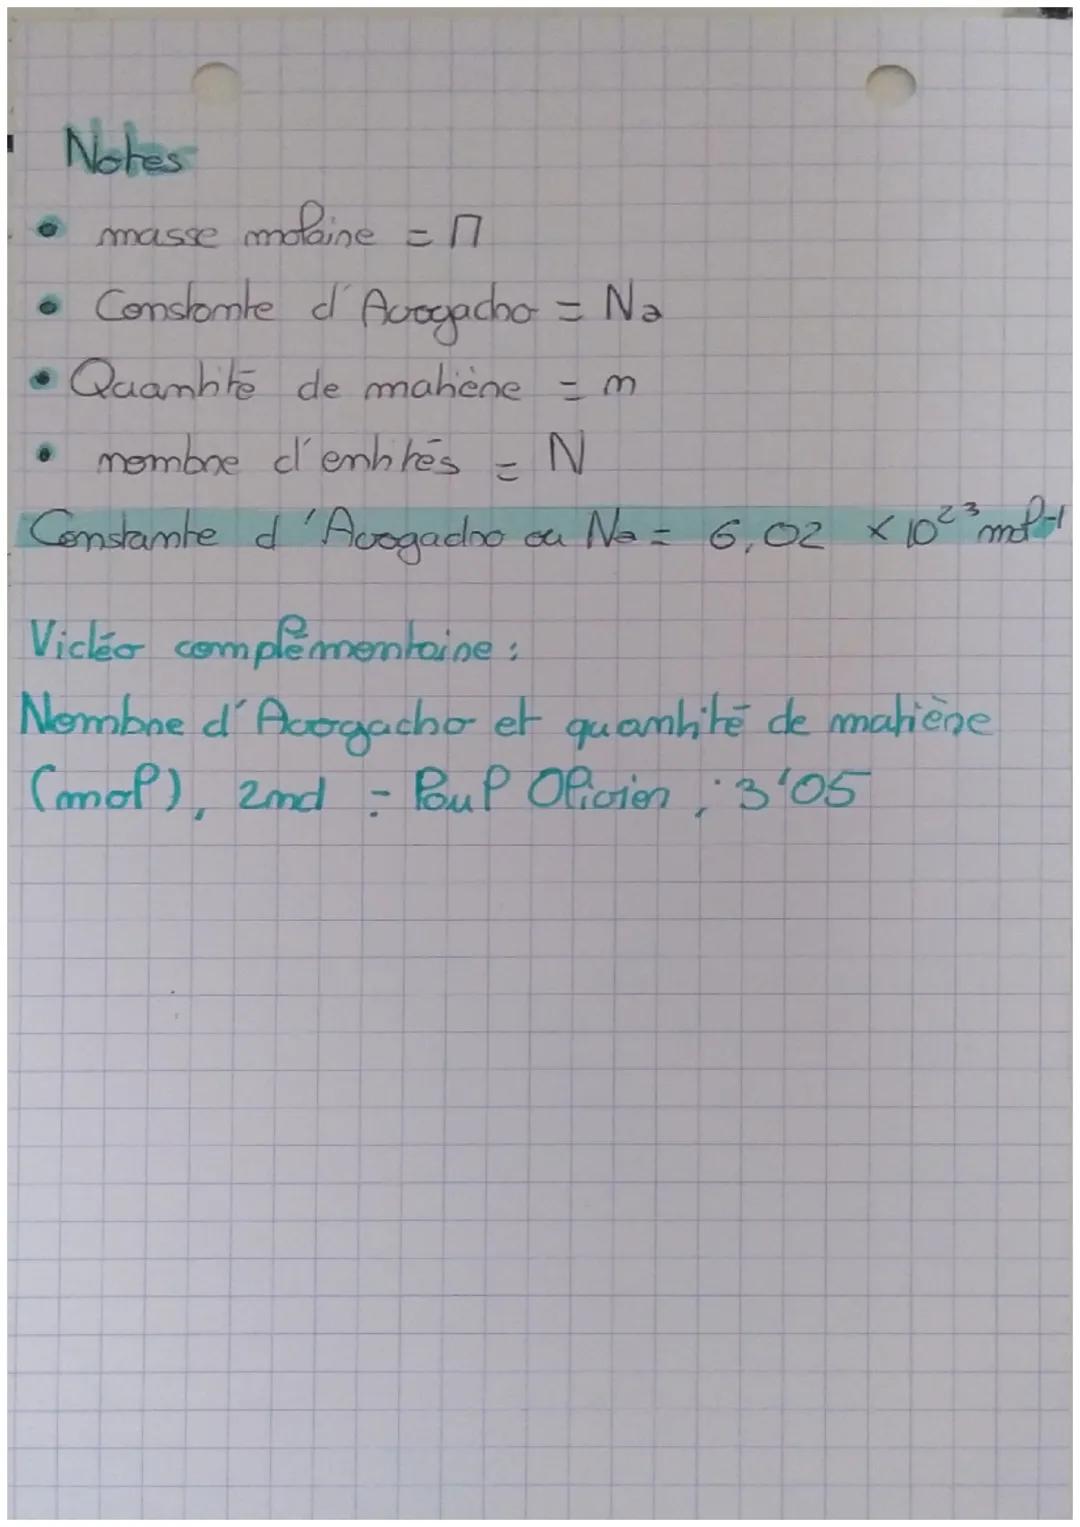 Notes
• masse molaire = M
• Constante d'Avogadro = Na
• Quantité de matière = n
• nombre d'entités = N
Constante d'Avogadro ou Na = 6,02 × 10²³ mol⁻¹
Vidéo complémentaire :
Nombre d'Avogadro et quantité de matière
(mol), 2nd - Paul Olivier ; 3'05